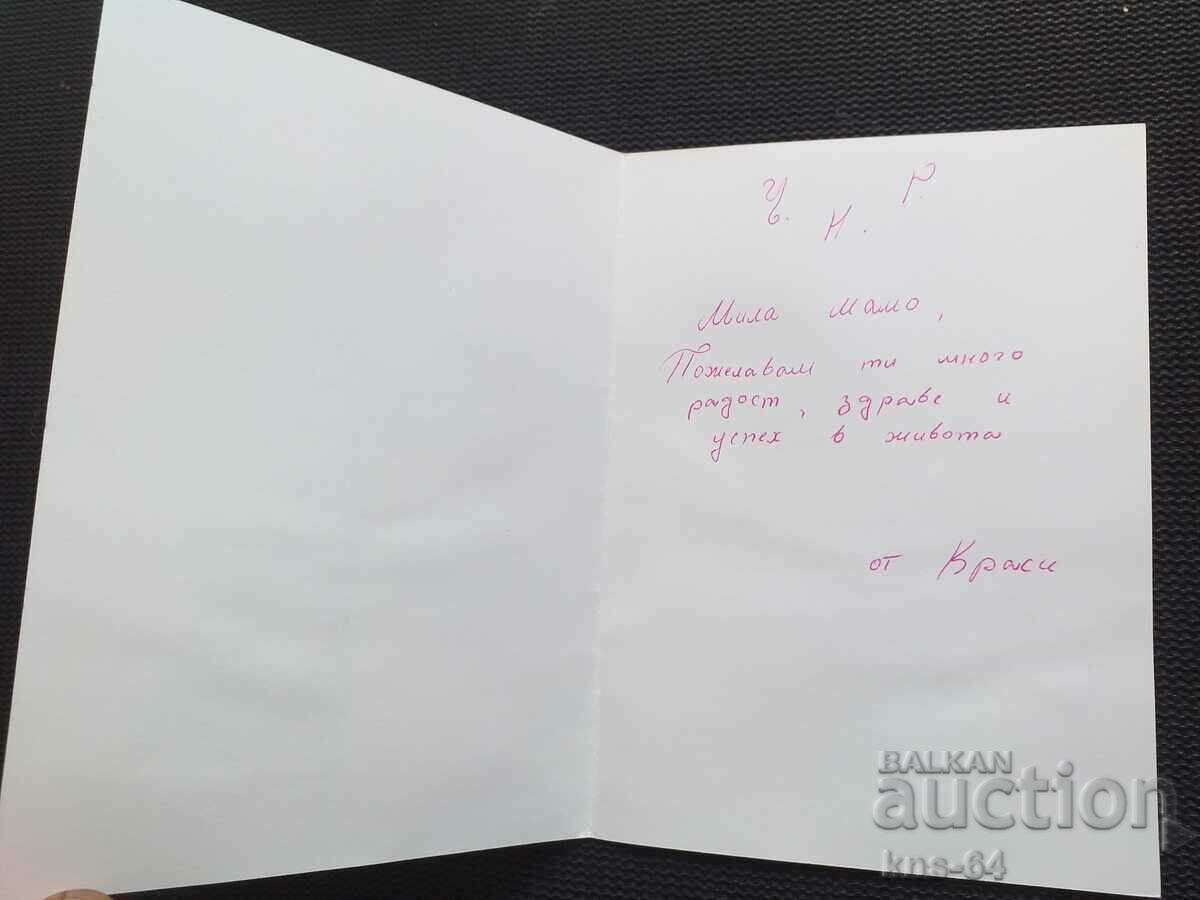 Ч. Н. Г.
Мила мамо,
Пожелавам ти много
радост, здраве и
успех в живота
от Краси
BALKAN
auction
kns-64